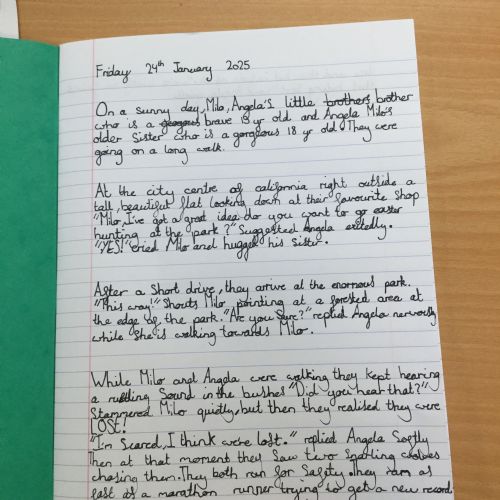 Friday 24th January 2025
On a sunny day, Milo, Angela's little brothers brother
who is a brave 13 yr old and Angela Milo's
older sister who is a gorgeous 18 yr old. They were
going on a long walk.
At the city centre of california right outside a
tall, beautiful flat looking down at their favourite shop
"Milo, I've got a great idea do you want to go easter
hunting at the park?" Suggested Angela exitedly.
"YES!" cried Milo and hugged his sister.
After a short drive, they arrive at the enormous park.
"This way!" Shouts Milo pointing at a forested area at
the edge of the park. "Are you sure?" replied Angela nervously
while she is walking towards Milo.
While Milo and Angela were walking they kept hearing
a rustling sound in the bushes "Did you hear that?"
Stammered Milo quietly, but then they realised they were
LOST!
"I'm scared, I think we're lost." replied Angela softly
Then at that moment they saw two snarling wolves
chasing them. They both run for safety. They ran as
fast as a marathon runner trying to get a new record